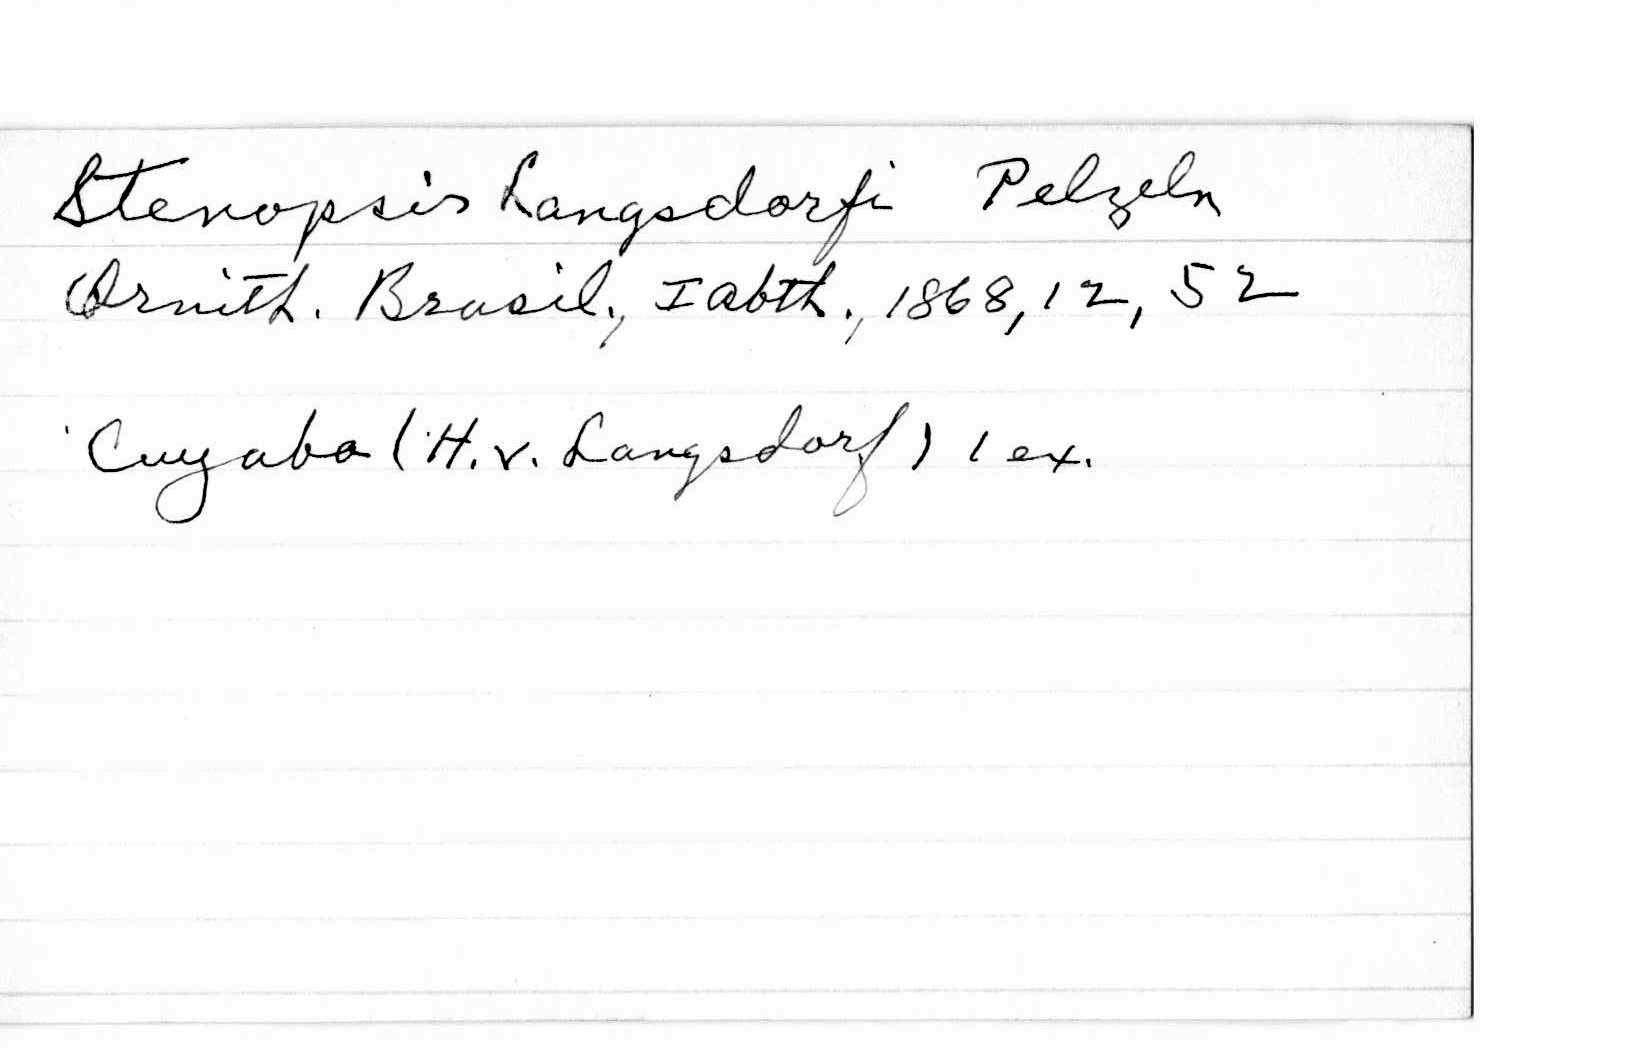 Stenopsis Langsdorfi Pelzeln
Ornith. Brasil., I abth., 1868, 12, 52
Cuyaba (H. v. Langsdorf) 1 ex.